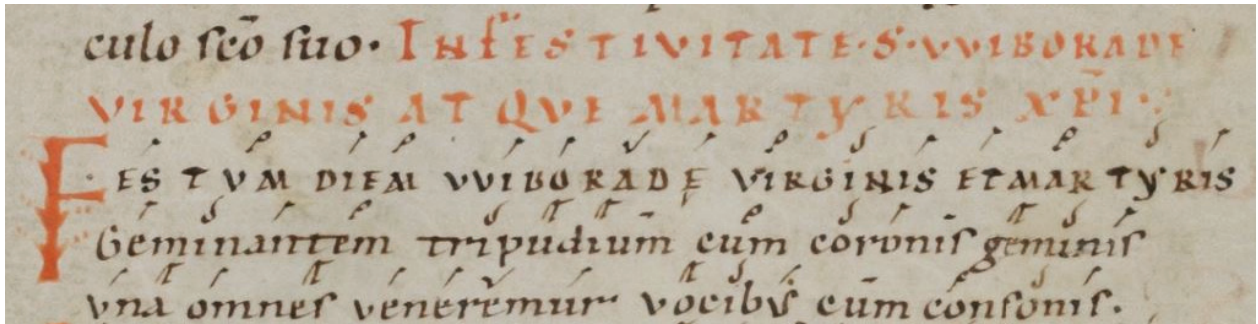 culo sc̄o suo· IN FESTIVITATE·S·VVIBORADE
VIRGINIS AT QVE MARTYRIS XP̄I·
FESTVM DIEM VVIBORADĘ VIRGINIS ET MARTYRIS
Geminantem tripudium̄ cum coronis geminis
vna omnes veneremur vocibus cum consonis·